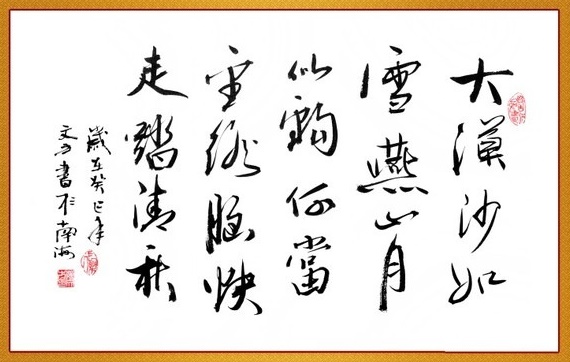 大漠沙如
雪燕山月
似鉤何當
金絡腦快
走踏清秋
歲在癸巳年
文書於南海